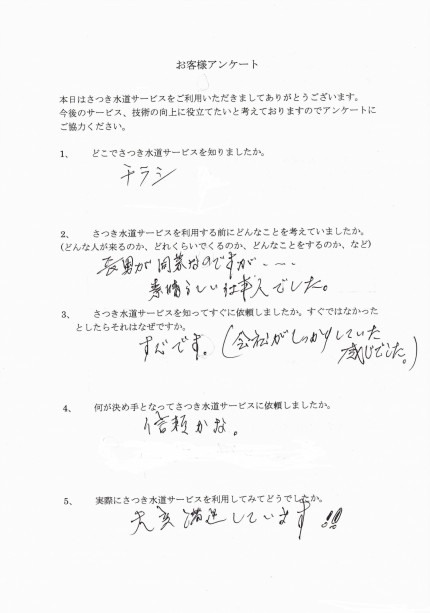 お客様アンケート
本日はさつき水道サービスをご利用いただきましてありがとうございます。
今後のサービス、技術の向上に役立てたいと考えておりますのでアンケートに
ご協力ください。
1、 どこでさつき水道サービスを知りましたか。
チラシ
2、 さつき水道サービスを利用する前にどんなことを考えていましたか。
(どんな人が来るのか、どれくらいでくるのか、どんなことをするのか、など)
長男が同業なのですが・・・・
素晴らしい仕事人でした。
3、 さつき水道サービスを知ってすぐに依頼しましたか。すぐではなかった
としたらそれはなぜですか。
すぐです。(会社がしっかりしていた
感じでした。)
4、 何が決め手となってさつき水道サービスに依頼しましたか。
信頼かな。
5、 実際にさつき水道サービスを利用してみてどうでしたか。
大変満足しています!!